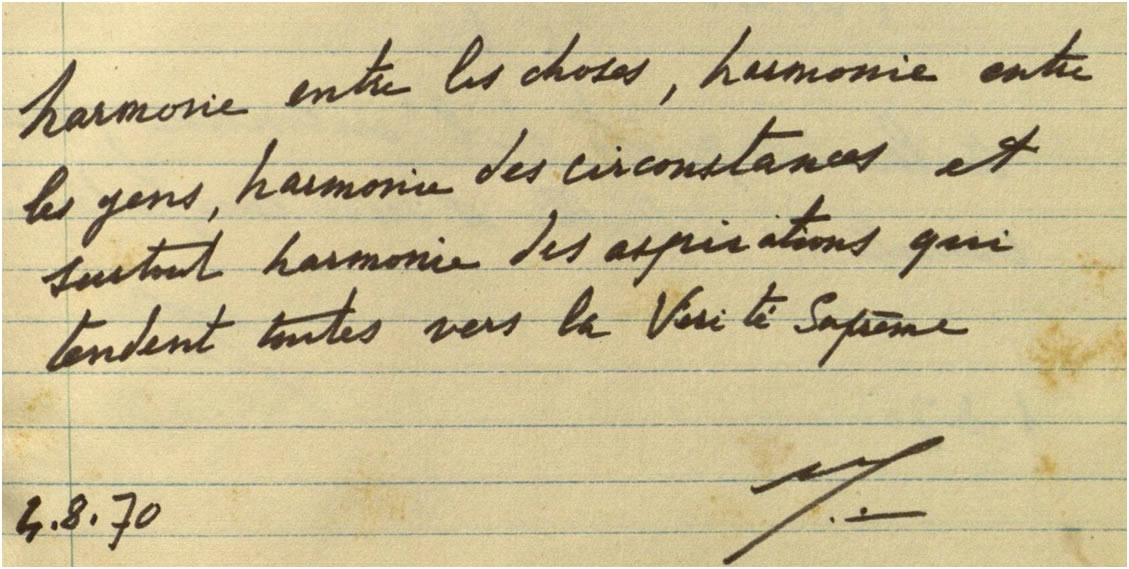 harmonie entre les choses, harmonie entre
les gens, harmonie des circonstances et
surtout harmonie des aspirations qui
tendent toutes vers la Vérité Suprême
.8.70